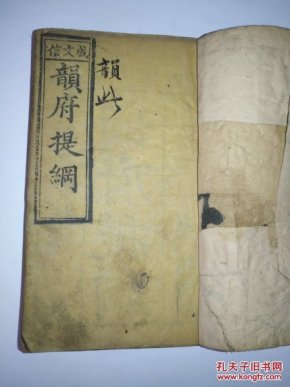 成文信
韻府提綱
韻此
孔夫子旧书网